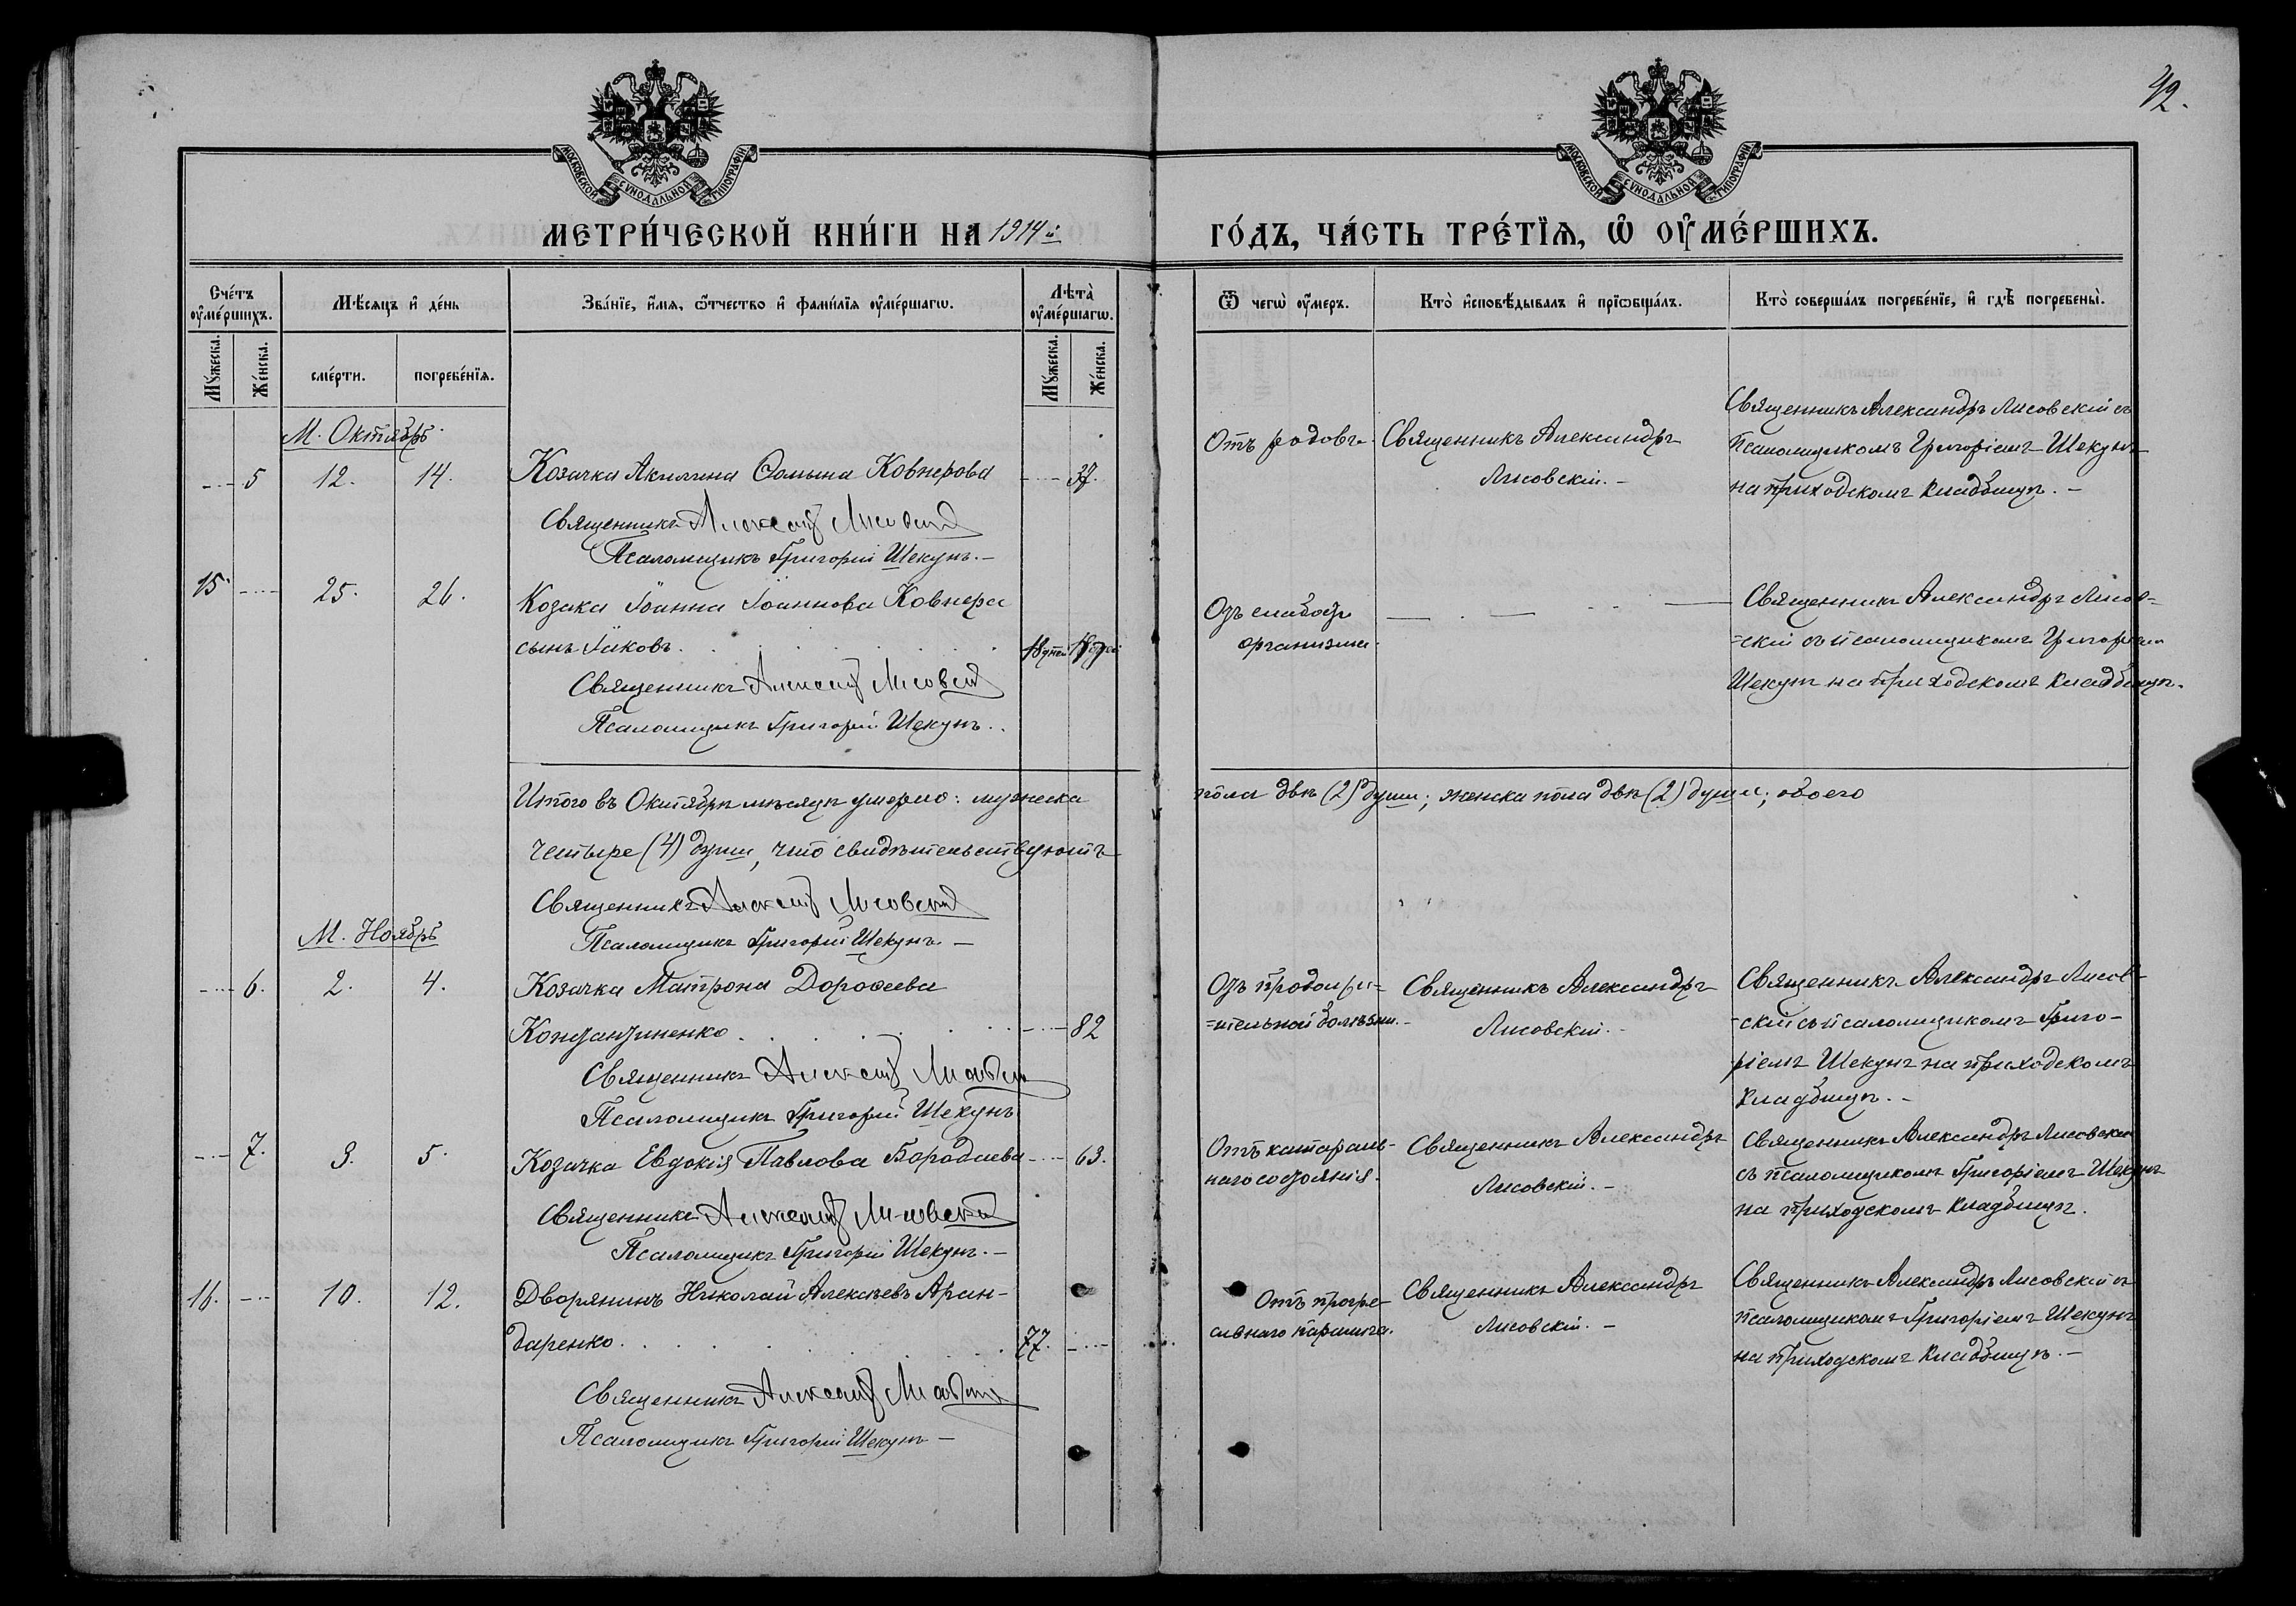 42.
МОСКОВСКОЙ СУНОДАЛЬНОЙ ТИПОГРАФІИ
МОСКОВСКОЙ СУНОДАЛЬНОЙ ТИПОГРАФІИ
МЕТРИ́ЧЕСКОЙ КНИ́ГИ НА 1914 й
ГО́ДЪ, ЧА́СТЬ ТРЕ́ТЇѦ, Ѡ҆ ОУ҆МЕ́РШИХЪ.
Сче́тъ оу҆ме́ршихъ.
Мѣ́сяцъ и҆ де́нь
Зва́нїе, и҆́мя, ѻ҆́тчество и҆ фами́лїя оу҆ме́ршагѡ.
Лѣта̀ оу҆ме́ршагѡ.
Ѿ чегѡ̀ оу҆́меръ.
Кто̀ и҆сповѣ́дывалъ и҆ прїѡбща́лъ.
Кто̀ соверша́лъ погребе́нїе, и҆ гдѣ̀ погребены̀.
Мꙋ́жеска.
Же́нска.
сме́рти.
погребе́нїя.
Мꙋ́жеска.
Же́нска.
М. Октябрь.
5 12. 14.
Козачка Акилина Ѳомина Ковнерова
37.
Священникъ Александръ Лисовскій
Псаломщикъ Григорій Шекунъ.—
Отъ родовъ.
Священникъ Александръ
Лисовскій.—
Священникъ Александръ Лисовскій съ
псаломщикомъ Григоріемъ Шекунъ
на приходскомъ кладбищѣ.—
15. 25. 26.
Козака Іоанна Іоаннова Ковнера
сынъ Іаковъ.
18 дней
Священникъ Александръ Лисовскій
Псаломщикъ Григорій Шекунъ.
Отъ слабости
организма.
Священникъ Александръ Лисов=
=скій съ псаломщикомъ Григоріемъ
Шекунъ на приходскомъ кладбищѣ.
Итого въ Октябрѣ мѣсяцѣ умерло: мужеска
пола двѣ (2) души; женска пола двѣ (2) души; обоего
четыре (4) души, что свидѣтельствуютъ
Священникъ Александръ Лисовскій
Псаломщикъ Григорій Шекунъ—
М. Ноябрь
6. 2. 4.
Козачка Матрона Дороѳеева
Константиненко.
82
Священникъ Александръ Лисовскій
Псаломщикъ Григорій Шекунъ
=тельной болѣзни.
Священникъ Александръ
Лисовскій.
Священникъ Александръ Лисов=
=скій съ псаломщикомъ Григо-
ріемъ Шекунъ на приходскомъ
кладбищѣ.—
7. 3. 5.
Козачка Евдокія Павлова Бородаева
63.
Священникъ Александръ Лисовскій
Псаломщикъ Григорій Шекунъ.—
Отъ катараль-
наго состоянія.
Священникъ Александръ
Лисовскій.—
Священникъ Александръ Лисовскій
съ псаломщикомъ Григоріемъ Шекунъ
на приходскомъ кладбищѣ.
16. 10. 12.
Дворянинъ Николай Алексѣевъ Арен-
даренко.
77.
Священникъ Александръ Лисовскій
Псаломщикъ Григорій Шекунъ—
Отъ прогре-
сивнаго паралича.
Священникъ Александръ
Лисовскій.—
Священникъ Александръ Лисовскій съ
псаломщикомъ Григоріемъ Шекунъ
на приходскомъ кладбищѣ.—